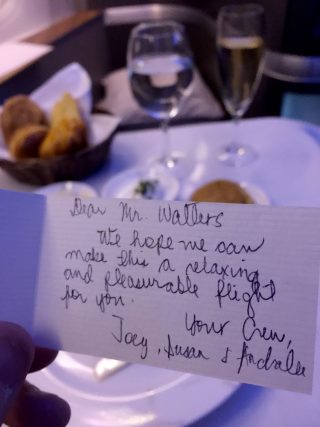 Dear Mr. Walters
We hope we can
make this a relaxing
and pleasurable flight
for you.
Your Crew,
Joey, Susan &